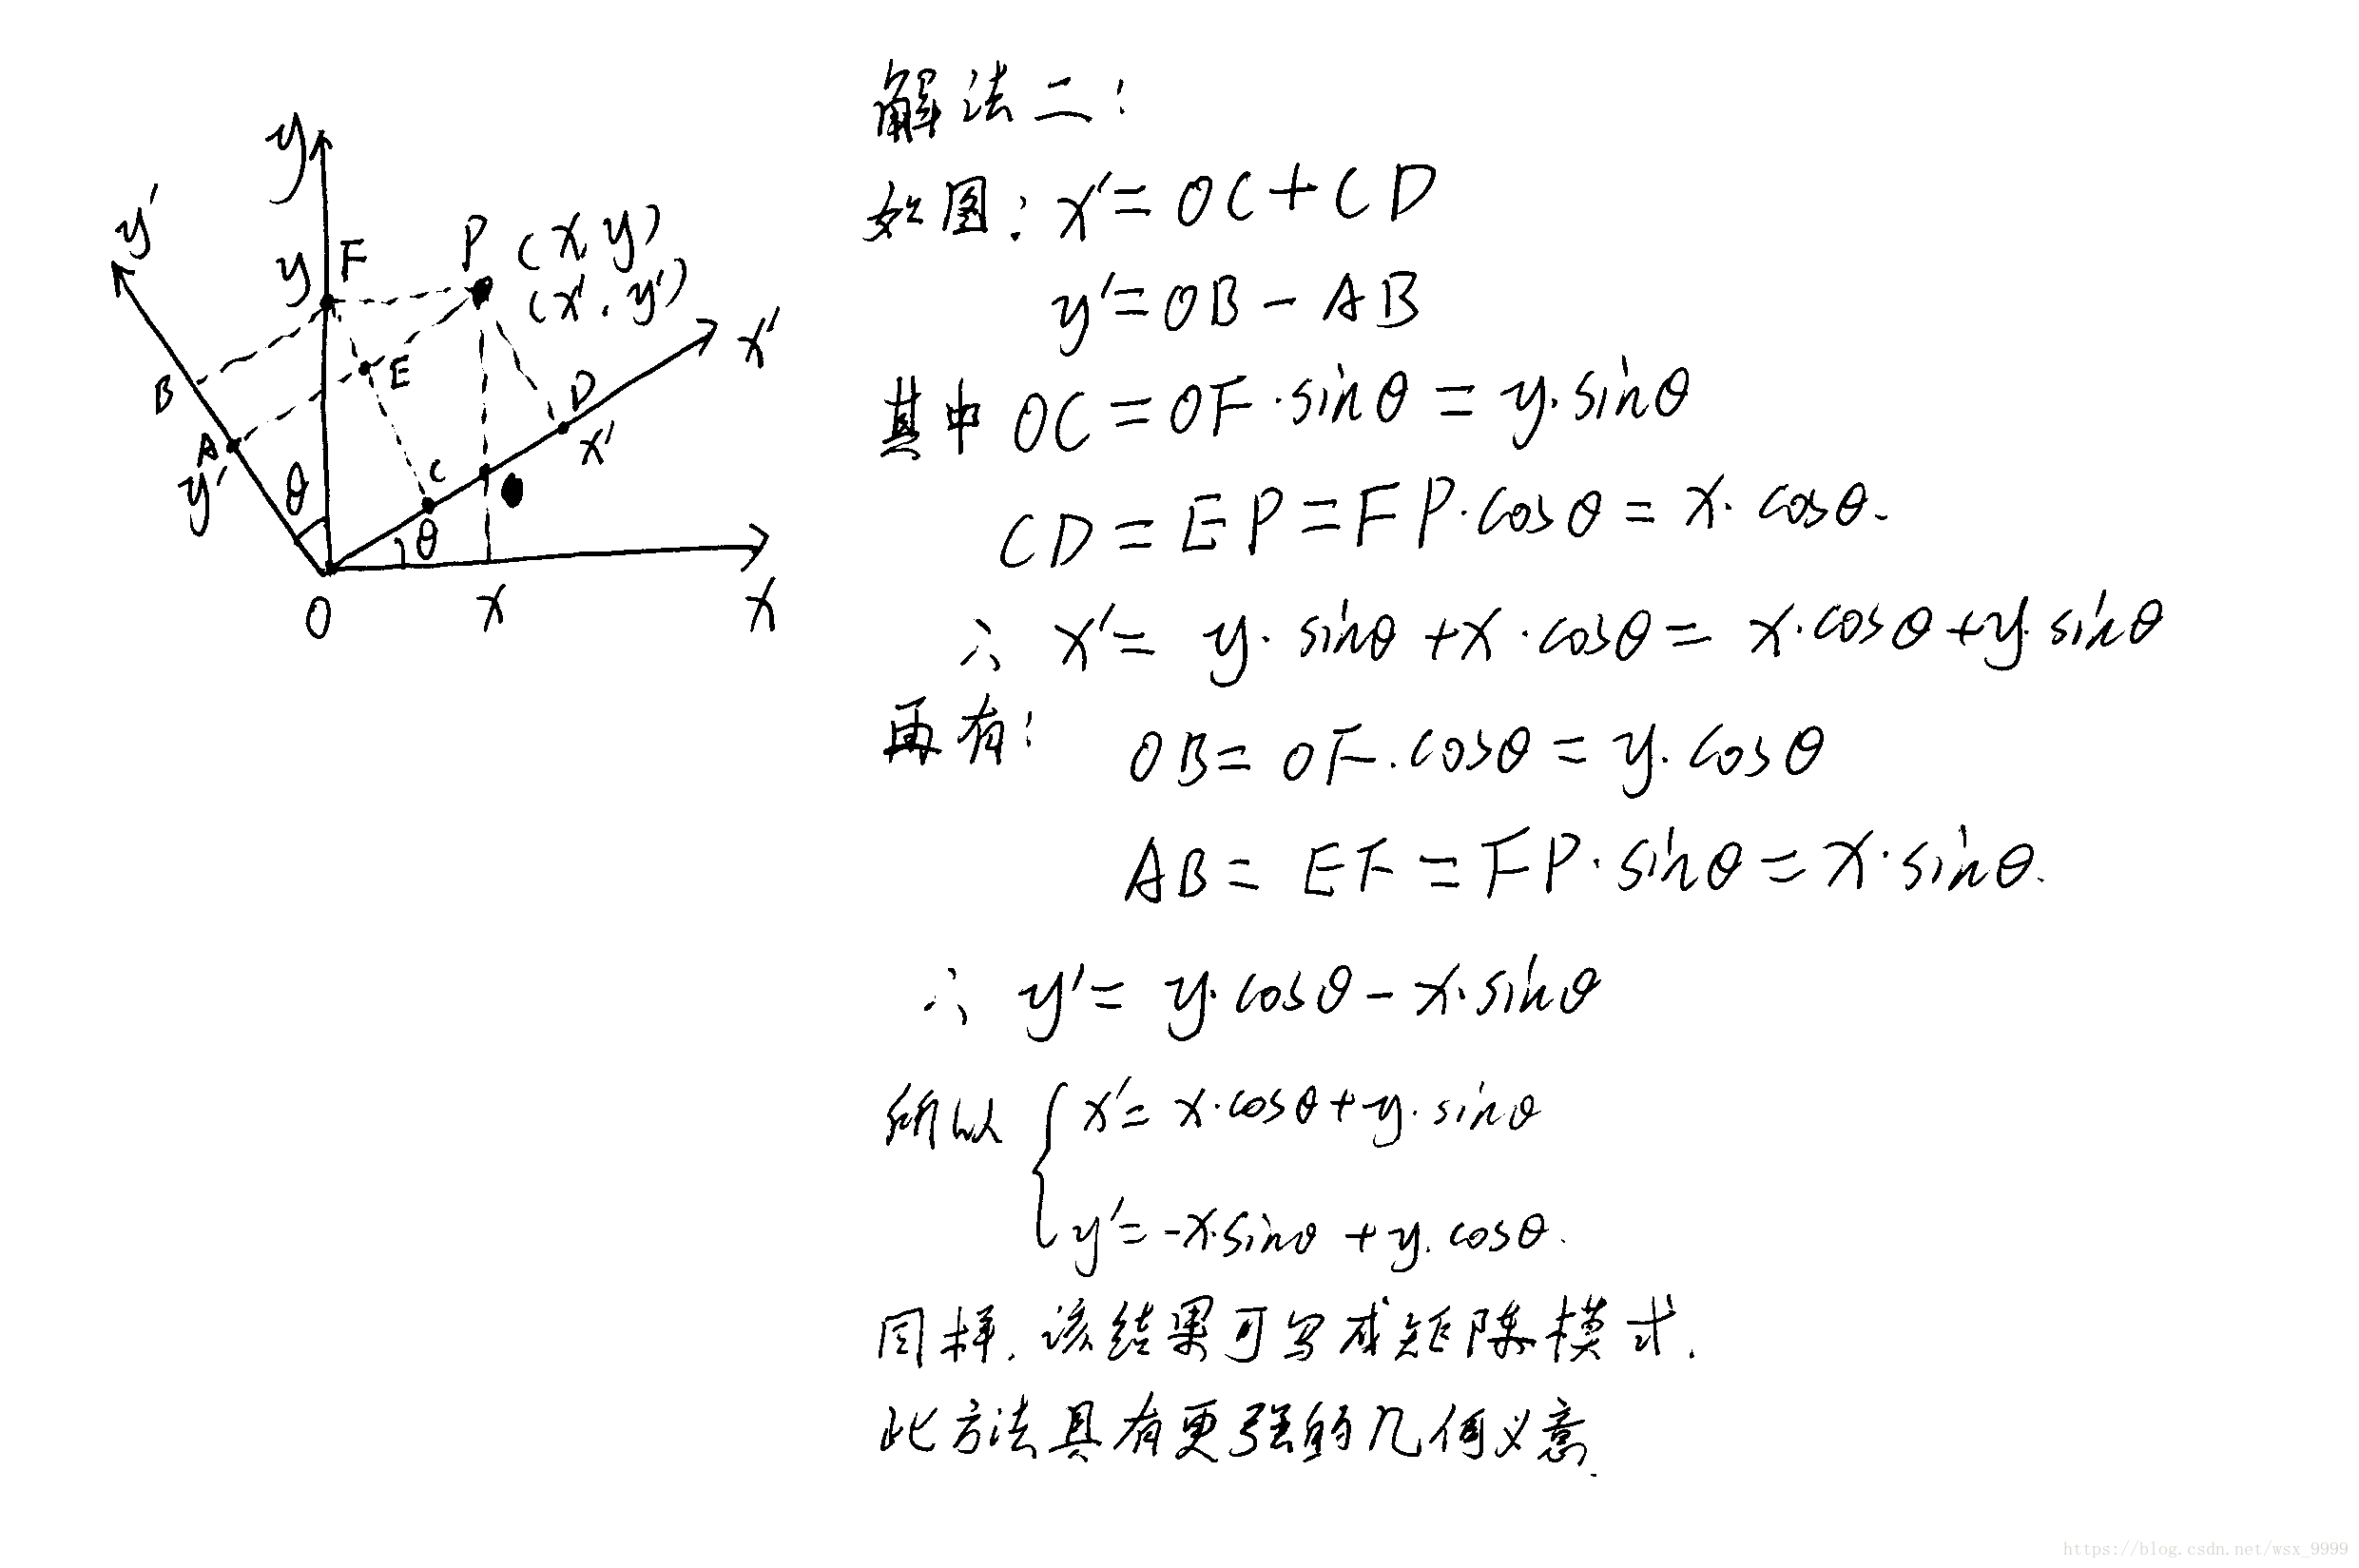 y
y'
y F P (x, y)
(x', y')
x'
B E D
A C x'
y' θ
θ
O x x
解法二:
如图: x' = OC + CD
y' = OB - AB
其中 OC = OF · sinθ = y · sinθ
CD = EP = FP · cosθ = x · cosθ.
∴ x' = y · sinθ + x · cosθ = x · cosθ + y · sinθ
再有: OB = OF · cosθ = y · cosθ
AB = EF = FP · sinθ = x · sinθ.
∴ y' = y · cosθ - x · sinθ
所以 { x' = x · cosθ + y · sinθ
y' = -x · sinθ + y · cosθ.
同样, 该结果可写成矩陈模式.
此方法具有更强的几何义意.
https://blog.csdn.net/wsx_9999